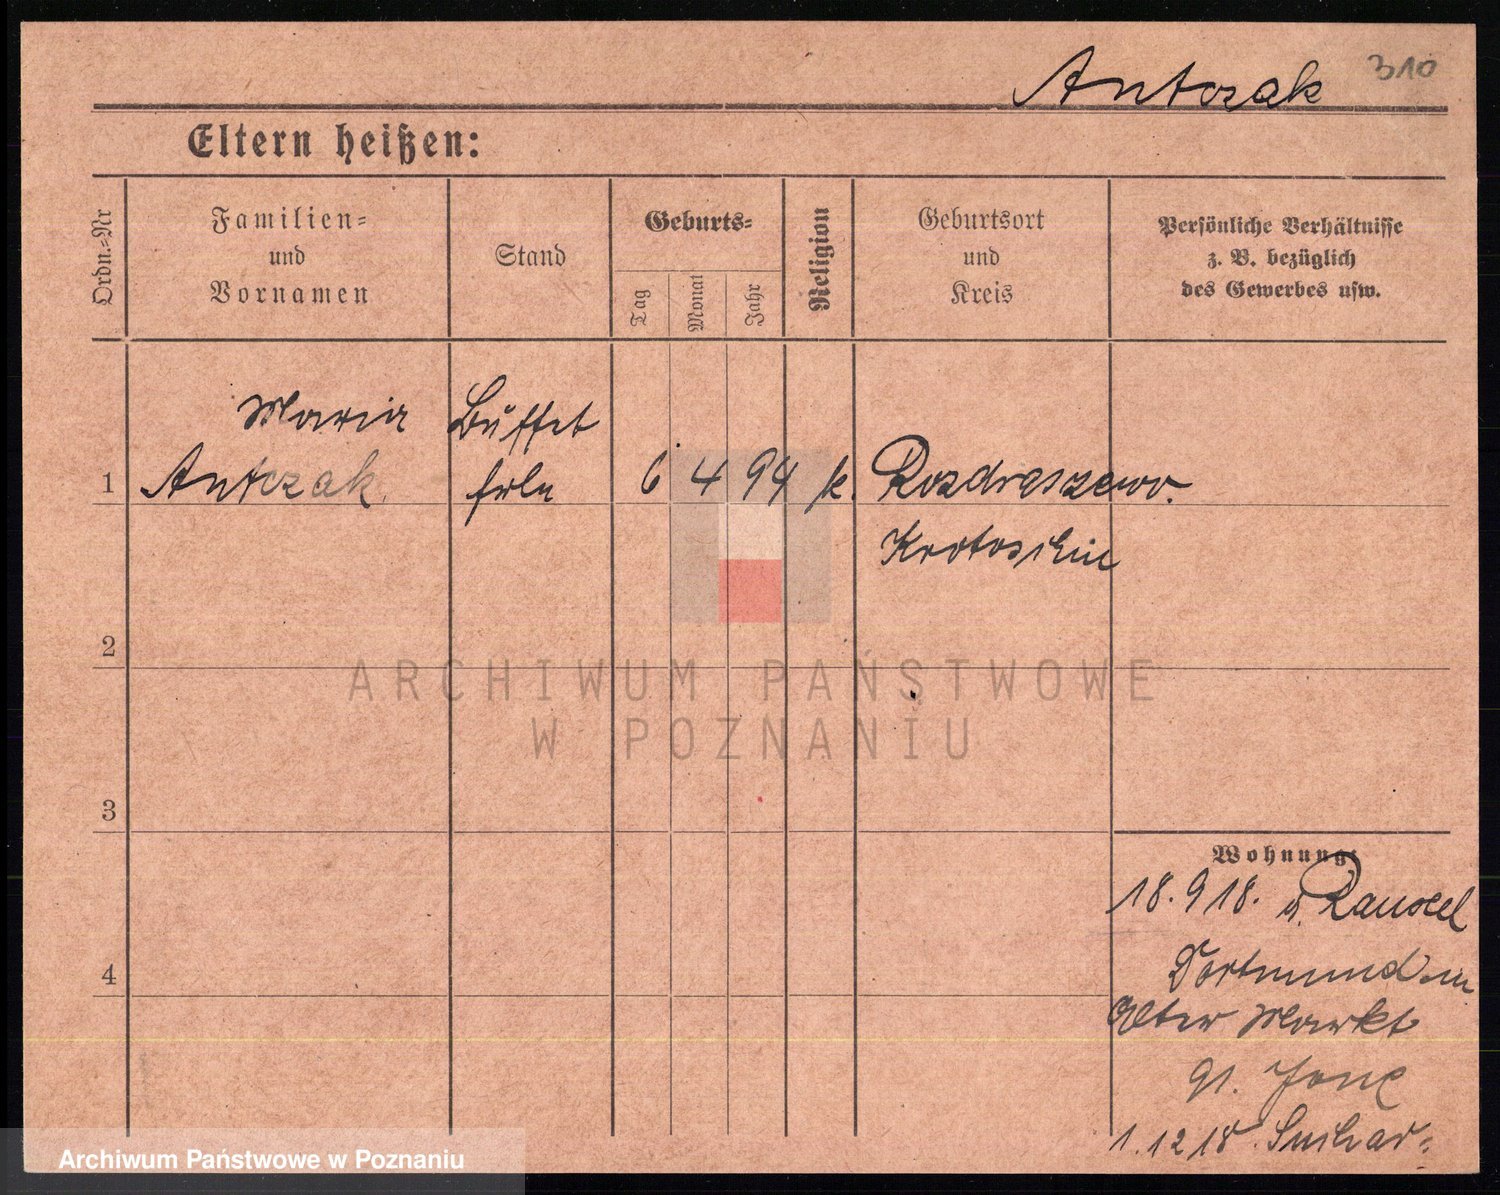 Antczak 310
Eltern heißen:
Ordn.=Nr
Familien=
und
Vornamen
Stand
Geburts=
Tag
Monat
Jahr
Religion
Geburtsort
und
Kreis
Persönliche Verhältnisse
z. B. bezüglich
des Gewerbes usw.
Maria Buffet
1 Antczak frln 6 4 94 k. Rozdraszewo.
Krotoschin
2
ARCHIWUM PAŃSTWOWE
W POZNANIU
3
Wohnung:
18.9 18. v. Rauxel
Dortmund
4
Alter Markt
91.
1.12 18.
Archiwum Państwowe w Poznaniu